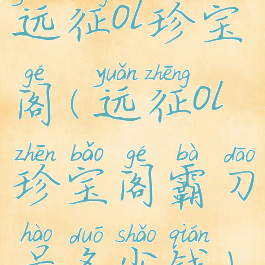 远征Ol珍宝
gé yuǎn zhēng
阁(远征Ol
zhēn bǎo gé bà dāo
珍宝阁霸刀
hào duō shǎo qián
号多少钱)